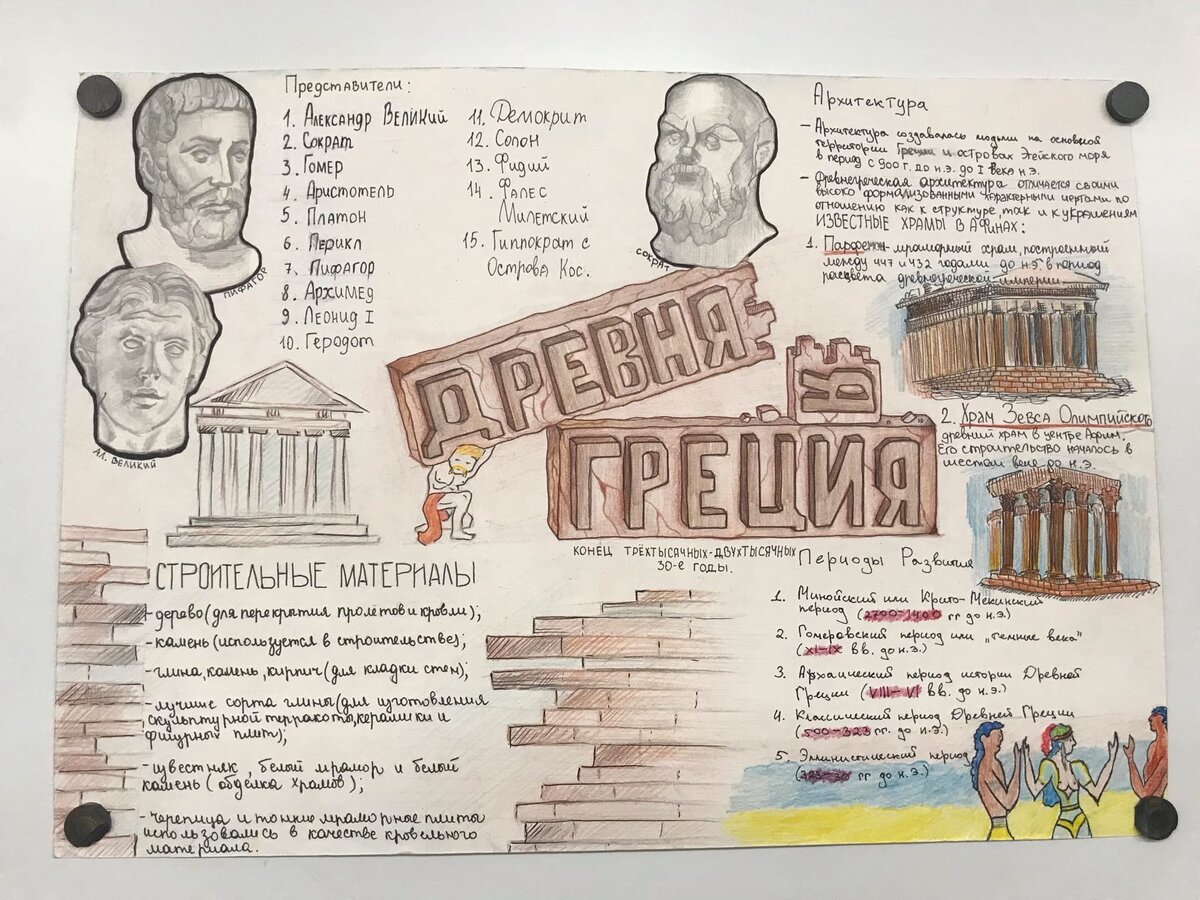 Представители:
1. Александр Великий
2. Сократ
3. Гомер
4. Аристотель
5. Платон
6. Перикл
7. Пифагор
8. Архимед
9. Леонид I
10. Геродот
11. Демокрит
12. Солон
13. Фидий
14. Фалес
Милетский
15. Гиппократ с
Острова Кос.
ПИФАГОР
АЛ. ВЕЛИКИЙ
СОКРАТ
Архитектура
- Архитектура создавалась людьми на основной
территории Греции и островах Эгейского моря
в период с 900 г. до н.э. до I века н.э.
- Древнегреческая архитектура отличается своими
высоко формализованными характерными чертами по
отношению как к структуре, так и к украшениям
ИЗВЕСТНЫЕ ХРАМЫ В АФИНАХ:
1. Парфенон-мраморный храм, построенный
между 447 и 432 годами до н.э. в период
расцвета древнегреческой империи
2. Храм Зевса Олимпийского
древний храм в центре Афин.
Его строительство началось в
шестом веке до н.э.
ДРЕВНЯ
Я
ГРЕЦИЯ
КОНЕЦ ТРЁХТЫСЯЧНЫХ-ДВУХТЫСЯЧНЫХ
30-е ГОДЫ.
СТРОИТЕЛЬНЫЕ МАТЕРИАЛЫ
- дерево (для перекрытия пролётов и кровли);
- камень (используется в строительстве);
- глина, камень, кирпич (для кладки стен);
- лучшие сорта глины (для изготовления
скульптурной терракоты, керамики и
фигурных плит);
- известняк, белый мрамор и белый
камень (отделка храмов);
- черепица и тонкие мраморные плиты
использовались в качестве кровельного
материала.
Периоды Развития
1. Минойский или Крито-Микенский
период (2700-1400 гг до н.э.)
2. Гомеровский период или „темные века"
(XI-IX вв. до н.э.)
3. Архаический период истории Древней
Греции (VIII-VI вв. до н.э.)
4. Классический период Древней Греции
(500-323 гг. до н.э.)
5. Эллинистический период
(323-30 гг до н.э.)